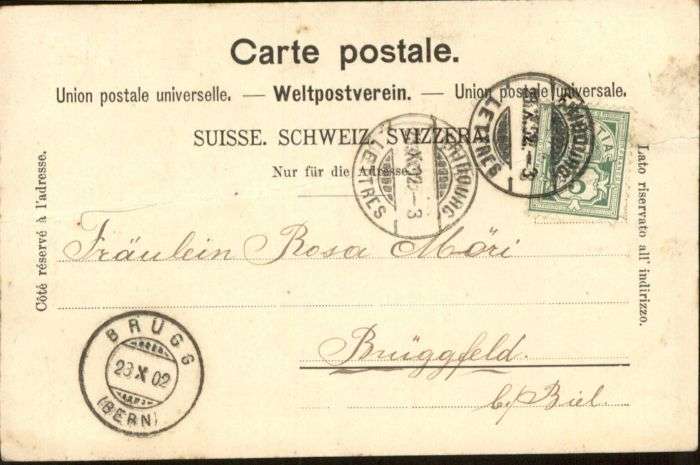 Carte postale.
Union postale universelle. — Weltpostverein. — Union postale universale.
SUISSE. SCHWEIZ. SVIZZERA.
Nur für die Adresse.
Côté réservé à l'adresse.
Lato riservato all' indirizzo.
FRIBOURG
LETTRES
FRIBOURG
X.02.–3
LETTRES
5
Fräulein Rosa Möri
Brüggfeld.
by Biel.
BRÜGG
23 X 02
(BERN)